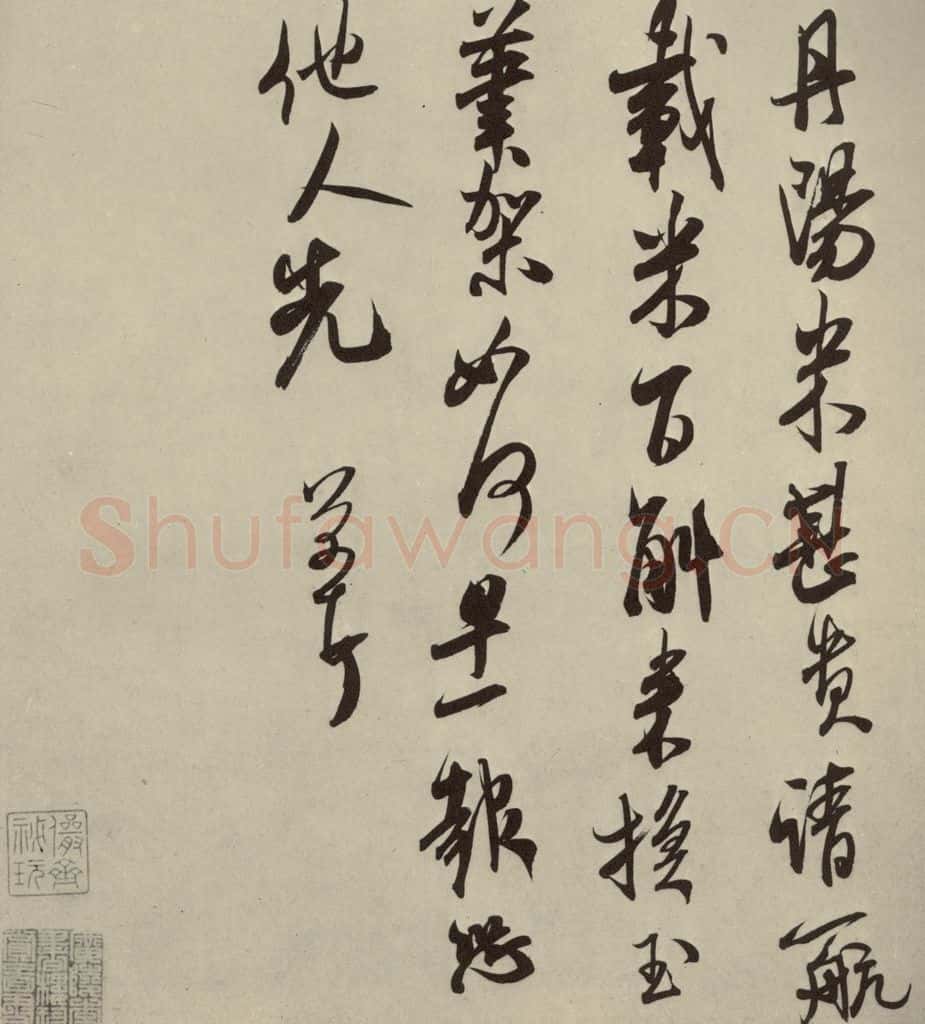 丹陽米甚貴請一航
載米百斛来換玉
筆架如何早一報恐
他人先
芾頓首
Shufawang.CN
儼齋秘玩